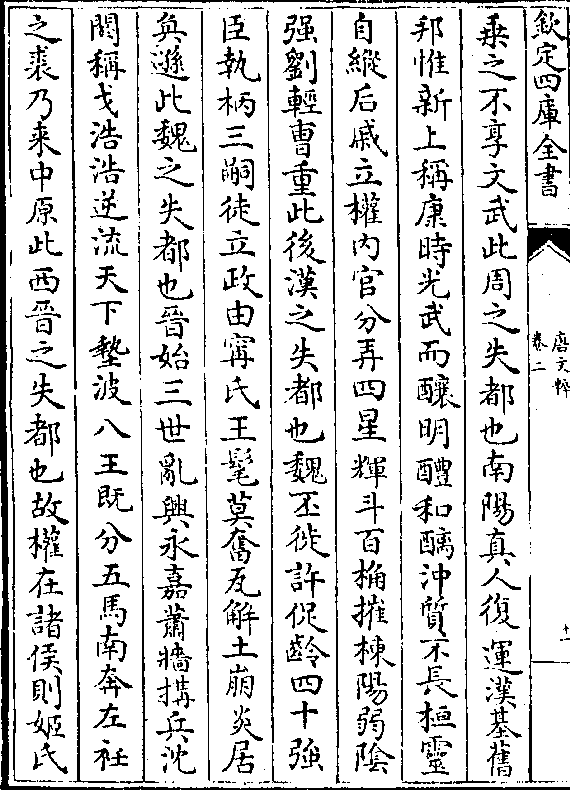 欽定四庫全書
唐文粹
卷二
十一
乗之不享文武此周之失都也南陽真人復運漢基舊
邦惟新上稱康時光武而釀明醴和醨沖質不長桓靈
自縱后戚立權内官分弄四星輝斗百桷摧棟陽弱陰
强劉輕曹重此後漢之失都也魏丕徙許促齡四十強
臣執柄三嗣徒立政由寗氏王髦莫奮瓦解土崩炎居
奐遜此魏之失都也晉始三世亂興永嘉蕭牆搆兵沈
閼稱戈浩浩逆流天下墊波八王既分五馬南奔左衽
之裘乃来中原此西晉之失都也故權在諸侯則姬氏